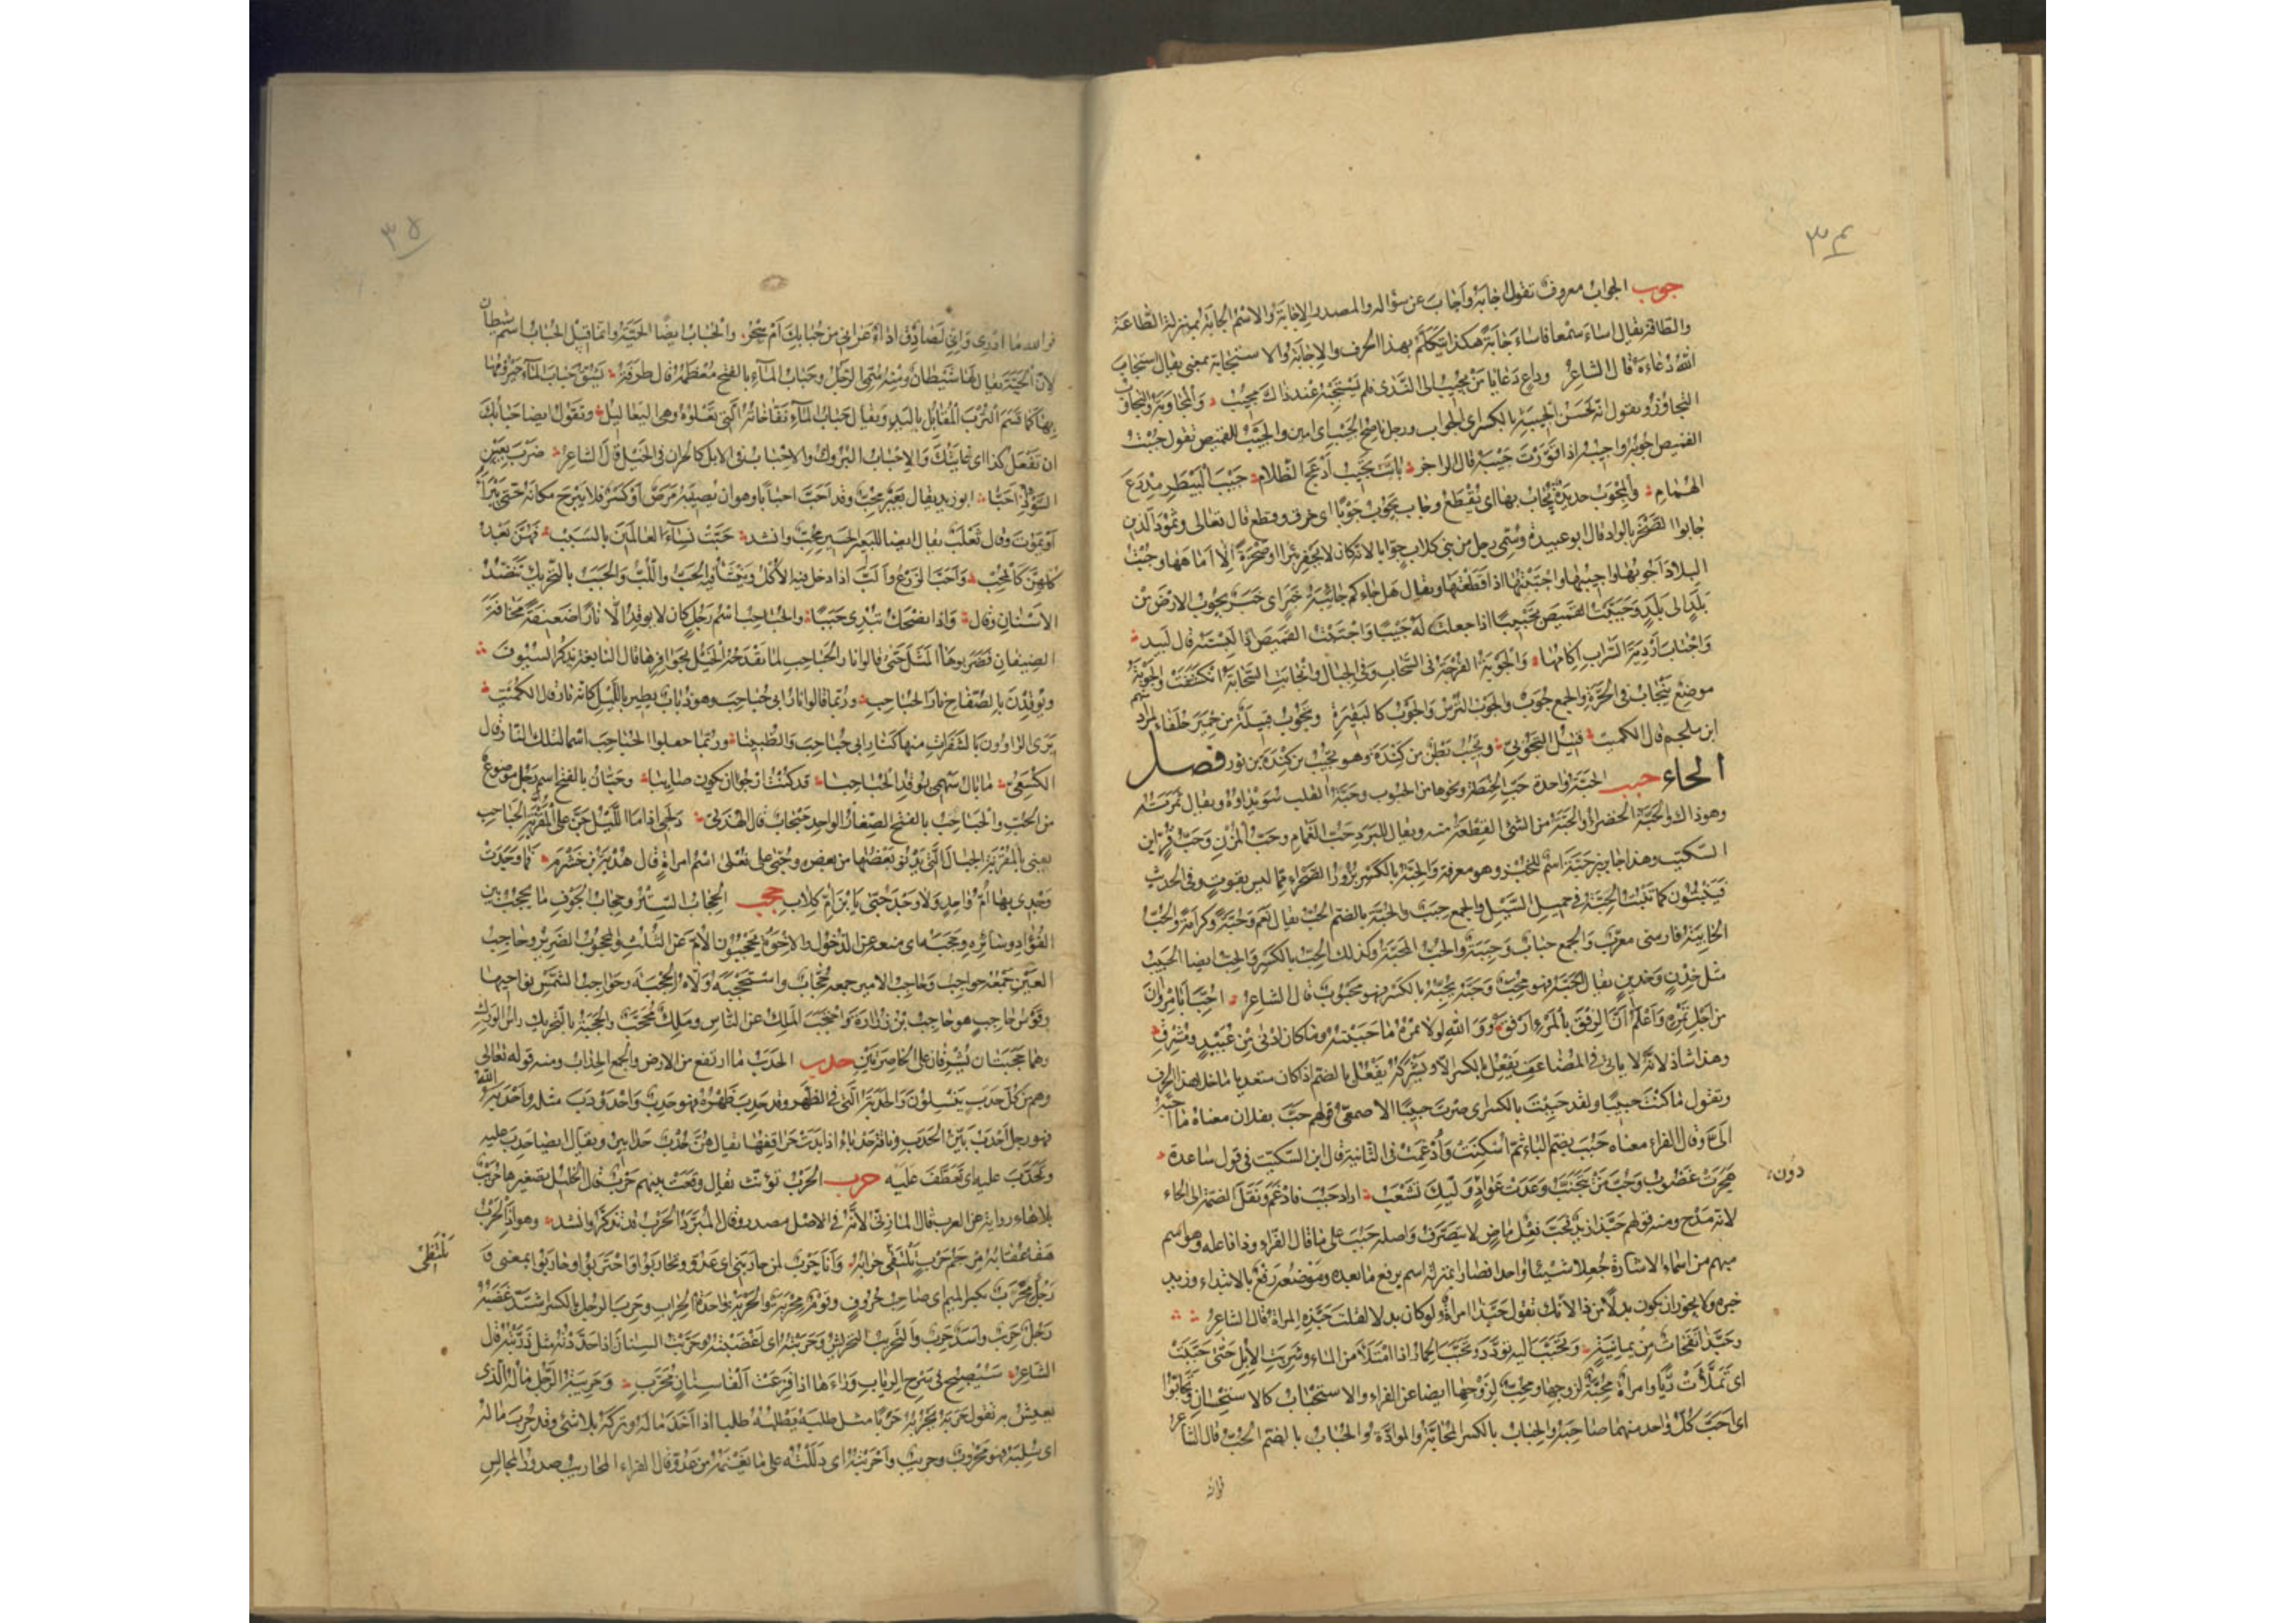 ٣٤
جوب الجواب معروف تقول اجابه واجاب عن سؤاله والمصدر الاجابة والاسم الجابة بمنزلة الطاعة
والطاقة يقال اساء سمعا فاساء جابة هكذا يتكلم بهذا الحرف والاجابة والاستجابة بمعنى يقال استجاب
الله دعاءه قال الشاعر وداع دعا يا من يجيب الى الندى فلم يستجبه عند ذاك مجيب والمجاوبة والتجاوب
التجاوز وتقول انه لحسن الجيبة بالكسر اى الجواب ورجل ناصح الجيب اى امين والجيب للقميص تقول جبت
القميص اجوبه واجيبه اذا قورت جيبه قال الراجز باتت تجيب ادعج الظلام جيب البيطر مدرع
الهمام والمجوب حديدة يجاب بها اى يقطع وجاب يجوب جوبا اى خرق وقطع قال تعالى وثمود الذين
جابوا الصخر بالواد قال ابو عبيدة وسمى رجل من بنى كلاب جوابا لانه كان لا يحفر بئرا او صخرة الا اماهها وجبت
البلاد اجوبها واجيبها واجتبتها اذا قطعتها ويقال هل جاءكم جائبة خبر اى خبر يجوب الارض من
بلد الى بلد وجيبت القميص تجييبا اذا جعلت له جيبا واجتبت القميص اذا لبسته قال لبيد
واجتاب اردية السراب اكامها والجوبة الفرجة فى السحاب وفى الجبال وانجابت السحابة انكشفت والجوبة
موضع ينجاب فى الحرة والجمع جوب والجوب الترس والجوب كالبقيرة وتجوب قبيلة من حمير حلفاء لمراد منهم
ابن ملجم قال الكميت قتيل التجوبى وتجيب بطن من كندة وهو تجيب بن كندة بن ثور فصل
الحاء حبب الحبة واحدة حب الحنطة ونحوها من الحبوب وحبة القلب سويداؤه ويقال ثمرته
وهو ذاك والحبة الخضراء والحبة من الشئ القطعة منه ويقال للبرد حب الغمام وحب المزن وحب قر ابن
السكيت وهذا جابر بن حبة اسم للخبز وهو معرفة والحبة بالكسر بزور الصحراء مما ليس بقوت وفى الحديث
فينبتون كما تنبت الحبة فى حميل السيل والجمع حبب والحبة بالضم الحب يقال نعم وحبة وكرامة والحب
الخابية فارسى معرب والجمع حباب وحببة والحب المحبة وكذلك الحب بالكسر والحب ايضا الحبيب
مثل خدن وخدين يقال احبه فهو محب وحبه يحبه بالكسر فهو محبوب قال الشاعر احب ابا مروان
من اجل تمره واعلم ان الرفق بالمرء ارفق ووالله لولا تمره ما حببته وما كان ادنى من عبيد ومشرق
وهذا شاذ لانه لا ياتى فى المضاعف يفعل بالكسر الا ويشركه يفعل بالضم اذا كان متعديا ما خلا هذا الحرف
وتقول ما كنت حبيبا ولقد حببت بالكسر اى صرت حبيبا الاصمعى قولهم حب بفلان معناه ما احبه
الى وقال الفراء معناه حبب بضم الباء ثم اسكنت وادغمت فى الثانية قال ابن السكيت فى قول ساعدة
هجرت غضوب وحب من يتجنب وعدت عواد دون وليك تشعب اراد حبب فادغم ونقل الضمة الى الحاء
لانه مدح ومنه قولهم حبذا زيد فحب فعل ماض لا يتصرف واصله حبب على ما قال الفراء وذا فاعله وهو اسم
مبهم من اسماء الاشارة جعلا شيئا واحدا فصارا بمنزلة اسم يرفع ما بعده وموضعه رفع بالابتداء وزيد
خبره ولا يجوز ان يكون بدلا من ذا لانك تقول حبذا امراة ولو كان بدلا لقلت حبذه المراة قال الشاعر
وحبذا نفحات من يمانية وتحبب اليه تودد وتحبب الحمار اذا امتلأ من الماء وشربت الابل حتى حببت
اى تملأت ريا وامراة محبة لزوجها ومحب لزوجها ايضا عن الفراء والاستحباب كالاستحسان وتحابوا
اى احب كل واحد منهما صاحبه والحباب بالكسر المحابة والموادة والحباب بالضم الحب قال الشاعر
دون
فوالله
٣٥
فوالله ما ادرى وانى لصادق اداء عرانى من حبابك ام سحر والحباب ايضا الحية وانما قيل الحباب اسم شيطان
لان الحية يقال لها شيطان ومنه سمى الرجل وحباب الماء بالفتح معظمه قال طرفة يشق حباب الماء حيزومها
بها كما قسم الترب المقابل باليد ويقال حباب الماء نفاخاته التى تعلوه وهى اليعاليل وتقول ايضا حبابك
ان تفعل كذا اى غايتك والاحباب البروك والاحباب فى الابل كالحران فى الخيل قال الشاعر ضرب بعير
السوء اذ احبا ابو زيد يقال بعير محب وقد احب احبابا وهو ان يصيبه مرض او كسر فلا يبرح مكانه حتى يبرأ
او يموت وقال ثعلب يقال ايضا للبعير الحسير محب وانشد حبت نساء العالمين بالسبب فهن بعد
كلهن كالمحب واحب الزرع والب اذا دخل فيه الاكل وينشأ فيه الحب واللب والحبب بالتحريك تنضد
الاسنان وقال واذا تضحك تبدى حببا والحباحب اسم رجل كان لا يوقد الا نارا ضعيفة مخافة
الضيفان فضربوا بها المثل حتى قالوا نار الحباحب لما تقدحه الخيل بحوافرها قال النابغة يذكر السيوف
ويوقدن بالصفاح نار الحباحب وربما قالوا نار ابى حباحب وهو ذباب يطير بالليل كانه نار قال الكميت
يرى الراوون بالشفرات منها كنار ابى حباحب والظبينا وربما جعلوا الحباحب اسما لتلك النار قال
الكسعى ما بال سهمى يوقد الحباحبا قد كنت ارجو ان يكون صائبا وحبان بالفتح اسم رجل موضوع
من الحب والحباحب بالفتح الصغار الواحد حبحاب قال الهذلى دلجى اذا ما الليل جن على المقرنة الحباحب
يعنى بالمقرنة الجبال التى يدنو بعضها من بعض وحبى على فعلى اسم امراة قال هدبة بن خشرم فما وجدت
وجدى بها ام واحد ولا وجد حبى بابن ام كلاب حجب الحجاب الستر وحجاب الجوف ما يحجب بين
الفؤاد وسائره وحجبه اى منعه عن الدخول والاخوة يحجبون الام عن الثلث والمحجوب الضرير وحاجب
العين جمعه حواجب وحاجب الامير جمعه حجاب واستحجبه ولاه الحجبة وحواجب الشمس نواحيها
وقوس حاجب هو حاجب بن زرارة واحتجب الملك عن الناس وملك محجب والحجبة بالتحريك راس الورك
وهما حجبتان تشرفان على الخاصرتين حدب الحدب ما ارتفع من الارض والجمع الحداب ومنه قوله تعالى
وهم من كل حدب ينسلون والحدبة التى فى الظهر وقد حدب ظهره فهو حدب واحدودب مثله واحدبه الله
فهو رجل احدب بين الحدب وناقة حدباء اذا بدت حراقفها يقال هن حدب حدابير ويقال ايضا حدب عليه
وتحدب عليه اى تعطف عليه حرب الحرب تؤنث يقال وقعت بينهم حرب قال الخليل تصغيرها حريب
بلا هاء رواية عن العرب قال المازنى لانه فى الاصل مصدر وقال المبرد الحرب قد تذكر وانشد وهو اذا الحرب
هفا عقابه مرجم حرب تلتقى حرابه وانا حرب لمن حاربنى اى عدو وتحاربوا واحتربوا وحاربوا بمعنى
رجل محرب بكسر الميم اى صاحب حروف وقوم محربة والحربة واحدة الحراب وحرب الرجل بالكسر اشتد غضبه
رجل حرب واسد حرب والتحريب التحريش وحربته اى اغضبته وحربت السنان اذا حددته مثل ذربته قال
الشاعر سيصبح فى سرح الرباب وراءها اذا فزعت الفا سنان محرب وحريبة الرجل ماله الذى
يعيش به تقول حربه يحربه حربا مثل طلبه يطلبه طلبا اذا اخذ ماله وتركه بلا شئ وقد حرب ماله
اى سلبه فهو محروب وحريب واحربته اى دللته على ما يغنمه من عدو قال الفراء المحاريب صدور المجالس
تلتظى